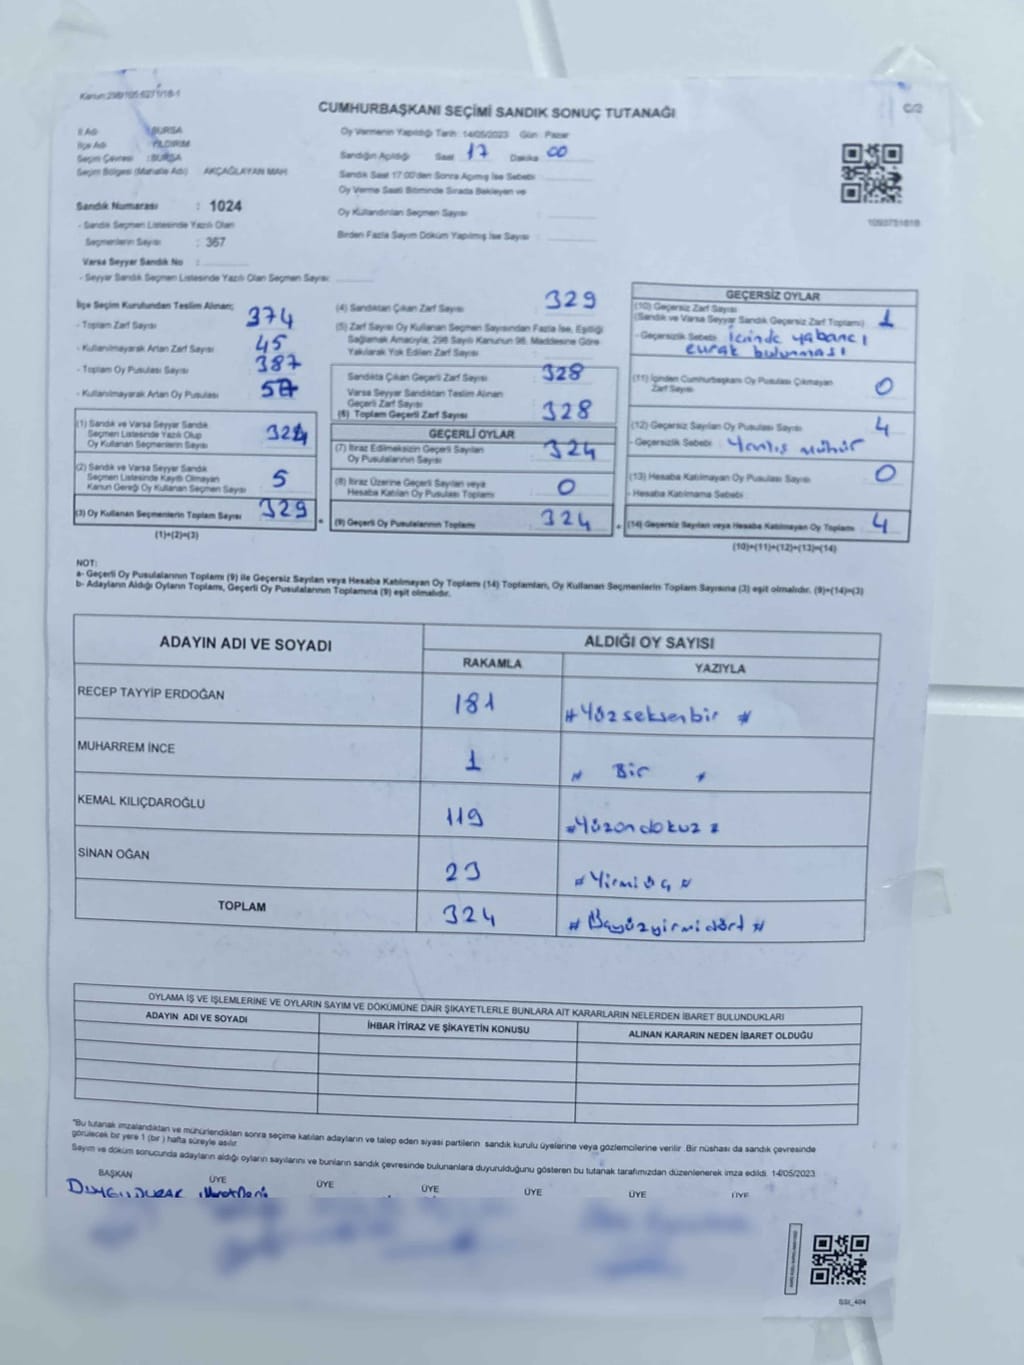 Kanun:298/105-6271/18-1
C/2
CUMHURBAŞKANI SEÇİMİ SANDIK SONUÇ TUTANAĞI
İl Adı : BURSA
İlçe Adı YILDIRIM
Seçim Çevresi : BURSA
Seçim Bölgesi (Mahalle Adı) AKÇAĞLAYAN MAH
Sandık Numarası : 1024
- Sandık Seçmen Listesinde Yazılı Olan
Seçmenlerin Sayısı : 367
Varsa Seyyar Sandık No :
- Seyyar Sandık Seçmen Listesinde Yazılı Olan Seçmen Sayısı:
Oy Vermenin Yapıldığı Tarih: 14/05/2023 Gün: Pazar
Sandığın Açıldığı Saat 17 Dakika 00
Sandık Saat 17:00'den Sonra Açımış İse Sebebi
Oy Verme Saati Bitiminde Sırada Bekleyen ve
Oy Kullandırılan Seçmen Sayısı :
Birden Fazla Sayım Döküm Yapılmış İse Sayısı :
1093751818
İlçe Seçim Kurulundan Teslim Alınan;
- Toplam Zarf Sayısı 374
- Kullanılmayarak Artan Zarf Sayısı 45
- Toplam Oy Pusulası Sayısı 387
- Kullanılmayarak Artan Oy Pusulası
(1) Sandık ve Varsa Seyyar Sandık
Seçmen Listesinde Yazılı Olup
Oy Kullanan Seçmenlerin Sayısı 324
(2) Sandık ve Varsa Seyyar Sandık
Seçmen Listesinde Kayıtlı Olmayan
Kanun Gereği Oy Kullanan Seçmen Sayısı 5
(3) Oy Kullanan Seçmenlerin Toplam Sayısı 329
(1)+(2)=(3)
(4) Sandıktan Çıkan Zarf Sayısı 329
(5) Zarf Sayısı Oy Kullanan Seçmen Sayısından Fazla İse, Eşitliği
Sağlamak Amacıyla; 298 Sayılı Kanunun 98. Maddesine Göre
Yakılarak Yok Edilen Zarf Sayısı
Sandıkta Çıkan Geçerli Zarf Sayısı 328
Varsa Seyyar Sandıktan Teslim Alınan
Geçerli Zarf Sayısı
(6) Toplam Geçerli Zarf Sayısı 328
GEÇERLİ OYLAR
(7) İtiraz Edilmeksizin Geçerli Sayılan
Oy Pusulalarının Sayısı 324
(8) İtiraz Üzerine Geçerli Sayılan veya
Hesaba Katılan Oy Pusulası Toplamı 0
(9) Geçerli Oy Pusulalarının Toplamı 324
+
GEÇERSİZ OYLAR
(10) Geçersiz Zarf Sayısı
(Sandık ve Varsa Seyyar Sandık Geçersiz Zarf Toplamı) 1
- Geçersizlik Sebebi: içinde yabancı
evrak bulunması
(11) İçinden Cumhurbaşkanı Oy Pusulası Çıkmayan
Zarf Sayısı 0
(12) Geçersiz Sayılan Oy Pusulası Sayısı 4
- Geçersizlik Sebebi : Yanlış mühür
(13) Hesaba Katılmayan Oy Pusulası Sayısı 0
- Hesaba Katılmama Sebebi :
(14) Geçersiz Sayılan veya Hesaba Katılmayan Oy Toplamı 4
(10)+(11)+(12)+(13)=(14)
NOT:
a- Geçerli Oy Pusulalarının Toplamı (9) ile Geçersiz Sayılan veya Hesaba Katılmayan Oy Toplamı (14) Toplamları, Oy Kullanan Seçmenlerin Toplam Sayısına (3) eşit olmalıdır. (9)+(14)=(3)
b- Adayların Aldığı Oyların Toplamı, Geçerli Oy Pusulalarının Toplamına (9) eşit olmalıdır.
ADAYIN ADI VE SOYADI ALDIĞI OY SAYISI
RAKAMLA YAZIYLA
RECEP TAYYİP ERDOĞAN 181 # Yüzseksenbir #
MUHARREM İNCE 1 # Bir #
KEMAL KILIÇDAROĞLU 119 # Yüzondokuz #
SİNAN OĞAN 23 # Yirmiüç #
TOPLAM 324 # Üçyüzyirmidört #
OYLAMA İŞ VE İŞLEMLERİNE VE OYLARIN SAYIM VE DÖKÜMÜNE DAİR ŞİKAYETLERLE BUNLARA AİT KARARLARIN NELERDEN İBARET BULUNDUKLARI
ADAYIN ADI VE SOYADI İHBAR İTİRAZ VE ŞİKAYETİN KONUSU ALINAN KARARIN NEDEN İBARET OLDUĞU
"Bu tutanak imzalandıktan ve mühürlendikten sonra seçime katılan adayların ve talep eden siyasi partilerin sandık kurulu üyelerine veya gözlemcilerine verilir. Bir nüshası da sandık çevresinde
görülecek bir yere 1 (bir) hafta süreyle asılır.
Sayım ve döküm sonucunda adayların aldığı oyların sayılarını ve bunların sandık çevresinde bulunanlara duyurulduğunu gösteren bu tutanak tarafımızdan düzenlenerek imza edildi. 14/05/2023
BAŞKAN ÜYE ÜYE ÜYE ÜYE ÜYE ÜYE
DUYGU DURAK
SSI_404